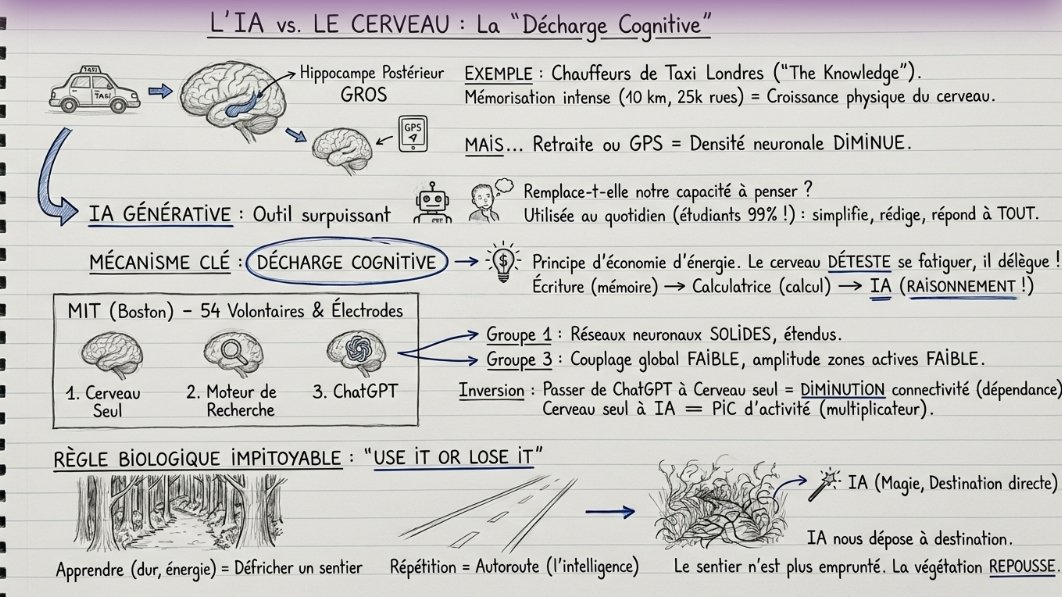 L'IA vs. LE CERVEAU : La "Décharge Cognitive"
TAXI
TAXI
Hippocampe Postérieur
GROS
GPS
EXEMPLE : Chauffeurs de Taxi Londres ("The Knowledge").
Mémorisation intense (10 km, 25k rues) = Croissance physique du cerveau.
MAIS... Retraite ou GPS = Densité neuronale DIMINUE.
IA GÉNÉRATIVE : Outil surpuissant
Remplace-t-elle notre capacité à penser ?
Utilisée au quotidien (étudiants 99% !) : simplifie, rédige, répond à TOUT.
MÉCANISME CLÉ : DÉCHARGE COGNITIVE → $
Principe d'économie d'énergie. Le cerveau DÉTESTE se fatiguer, il délègue !
Écriture (mémoire) → Calculatrice (calcul) → IA (RAISONNEMENT !)
MIT (Boston) – 54 Volontaires & Électrodes
1. Cerveau Seul
2. Moteur de Recherche
3. ChatGPT
Groupe 1 : Réseaux neuronaux SOLIDES, étendus.
Groupe 3 : Couplage global FAIBLE, amplitude zones actives FAIBLE.
Inversion : Passer de ChatGPT à Cerveau seul = DIMINUTION connectivité (dépendance)
Cerveau seul à IA = PIC d'activité (multiplicateur).
RÈGLE BIOLOGIQUE IMPITOYABLE : "USE IT OR LOSE IT"
IA (Magie, Destination directe)
IA nous dépose à destination.
Apprendre (dur, énergie) = Défricher un sentier
Répétition = Autoroute (l'intelligence)
Le sentier n'est plus emprunté. La végétation REPOUSSE.